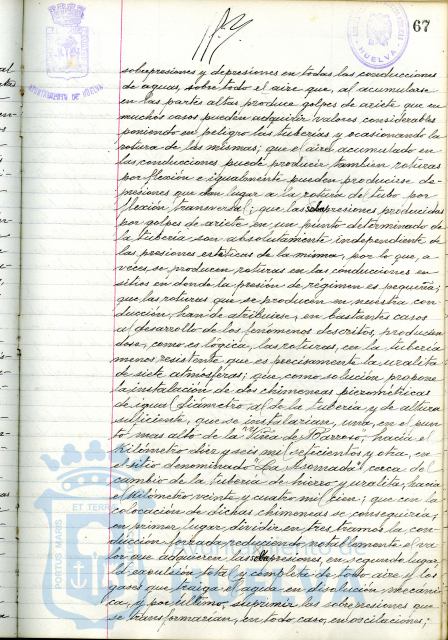 67
AYUNTAMIENTO DE HUELVA
HUELVA
sobrepresiones y depresiones en todas las conducciones
de aguas, sobre todo el aire que, al acumularse
en las partes altas produce golpes de ariete que en
muchos casos pueden adquirir valores considerables
poniendo en peligro las tuberías y ocasionando la
rotura de las mismas; que el aire acumulado en
las conducciones puede producir tambien roturas
por flexión e igualmente pueden producirse de-
presiones que dan lugar a la rotura del tubo por
flexión transversal; que las sobrepresiones producidas
por golpes de ariete en un punto determinado de
la tubería son absolutamente independiente de
las presiones estáticas de la misma, por lo que, a
veces, se producen roturas en las conducciones en
sitios en donde la presión de régimen es pequeña;
que las roturas que se producen en nuestra con-
ducción, han de atribuirse, en bastantes casos
al desarrollo de los fenómenos descritos, producien
dose, como es lógica, las roturas, en la tubería
menos resistente que es precisamente la uralita
de siete atmósferas; que como solución propone
la instalación de dos chimeneas piezométricas
de igual diámetro al de la tubería y de altura
suficiente, que se instalarían, una, en el pun-
to mas alto de la Viña de Barroso, hacia el
kilómetro diez y seis mil setecientos y otra, en
el sitio denominado "La Asomada" cerca del
cambio de la tubería de hierro y uralita, hacia
el kilómetro veinte y cuatro mil cien; que con la
colocación de dichas chimeneas se conseguiría;
en primer lugar, dividir en tres tramos la con-
ducción forzada reduciendo notablemente el va-
lor que adquieren las sobrepresiones, en segundo lugar,
la expulsión total y completa de todo aire y los
gases que traiga el agua en disolución mecáni-
ca, y por último, suprimir las sobrepresiones que
se transformarían, en todo caso, en oscilaciones;
PORTUS MARIS ET TERR
Ayuntamiento de